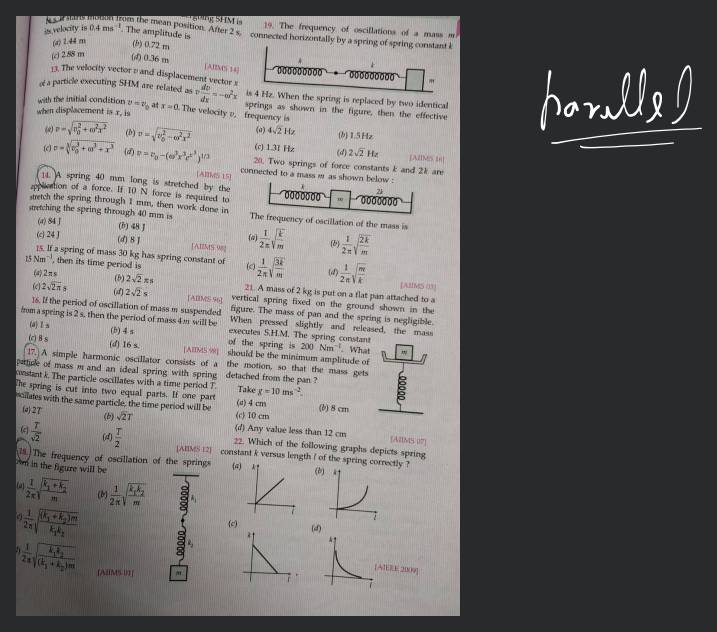 starts motion from the mean position. After 2 s,
its velocity is 0.4 ms⁻¹. The amplitude is
(a) 1.44 m (b) 0.72 m
(c) 2.88 m (d) 0.36 m
[AIIMS 14]
13. The velocity vector v and displacement vector x
of a particle executing SHM are related as v dv/dx = −ω²x
with the initial condition v = v₀ at x = 0. The velocity v,
when displacement is x, is
(a) v = √(v₀² + ω²x²) (b) v = √(v₀² − ω²x²)
(c) v = ∛(v₀³ + ω³ + x³) (d) v = v₀ − (ω³x³e^x³)^1/3
[AIIMS 15]
14. A spring 40 mm long is stretched by the
application of a force. If 10 N force is required to
stretch the spring through 1 mm, then work done in
stretching the spring through 40 mm is
(a) 84 J (b) 48 J
(c) 24 J (d) 8 J
[AIIMS 98]
15. If a spring of mass 30 kg has spring constant of
15 Nm⁻¹, then its time period is
(a) 2π s (b) 2√2 π s
(c) 2√2π s (d) 2√2 s
[AIIMS 96]
16. If the period of oscillation of mass m suspended
from a spring is 2 s, then the period of mass 4m will be
(a) 1 s (b) 4 s
(c) 8 s (d) 16 s.
[AIIMS 98]
17. A simple harmonic oscillator consists of a
particle of mass m and an ideal spring with spring
constant k. The particle oscillates with a time period T.
The spring is cut into two equal parts. If one part
oscillates with the same particle, the time period will be
(a) 2T (b) √2T
(c) T/√2 (d) T/2
[AIIMS 12]
18. The frequency of oscillation of the springs
in the figure will be
(a) 1/2π √((k₁ + k₂)/m) (b) 1/2π √(k₁k₂/m)
(c) 1/2π √((k₁ + k₂)m/k₁k₂)
1/2π √(k₁k₂/(k₁ + k₂)m)
k₁
k₂
m
[AIIMS 01]
19. The frequency of oscillations of a mass m
connected horizontally by a spring of spring constant k
k k
m
is 4 Hz. When the spring is replaced by two identical
springs as shown in the figure, then the effective
frequency is
(a) 4√2 Hz (b) 1.5Hz
(c) 1.31 Hz (d) 2√2 Hz
[AIIMS 16]
20. Two springs of force constants k and 2k are
connected to a mass m as shown below :
k m 2k
The frequency of oscillation of the mass is
(a) 1/2π √(k/m) (b) 1/2π √(2k/m)
(c) 1/2π √(3k/m) (d) 1/2π √(m/k)
[AIIMS 03]
21. A mass of 2 kg is put on a flat pan attached to a
vertical spring fixed on the ground shown in the
figure. The mass of pan and the spring is negligible.
When pressed slightly and released, the mass
executes S.H.M. The spring constant
of the spring is 200 Nm⁻¹. What
should be the minimum amplitude of
the motion, so that the mass gets
detached from the pan ?
Take g = 10 ms⁻².
(a) 4 cm (b) 8 cm
(c) 10 cm
(d) Any value less than 12 cm
m
[AIIMS 07]
22. Which of the following graphs depicts spring
constant k versus length l of the spring correctly ?
(a) k l (b) k l
(c) k l (d) k l
[AIEEE 2009]
parallel